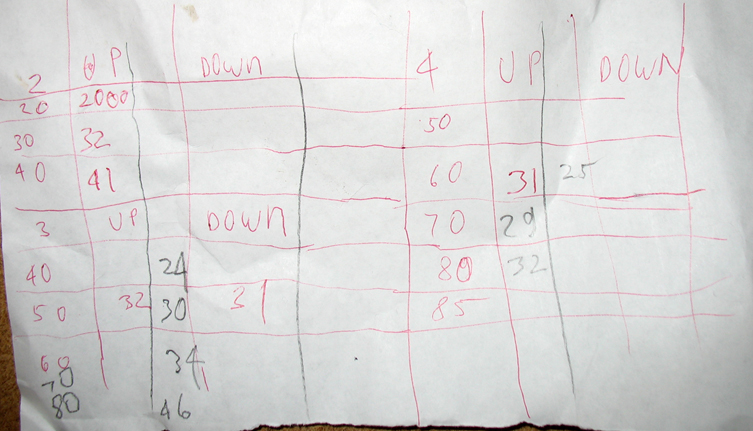 2 UP DOWN 4 UP DOWN
20 2000
30 32 50
40 41 60 31 25
3 UP DOWN 70 29
40 24 80 32
50 32 30 31 85
60 34
70
80 46